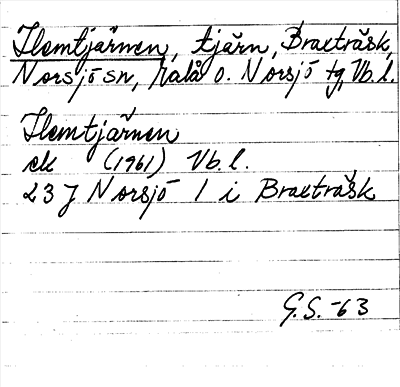 Ilomtjärnen, tjärn, Braxträsk,
Norsjö sn, Malå o. Norsjö tg, Vb. l.
Ilomtjärnen
ek (1961) Vb. l.
23 J Norsjö 1 i Braxträsk
G.S. -63